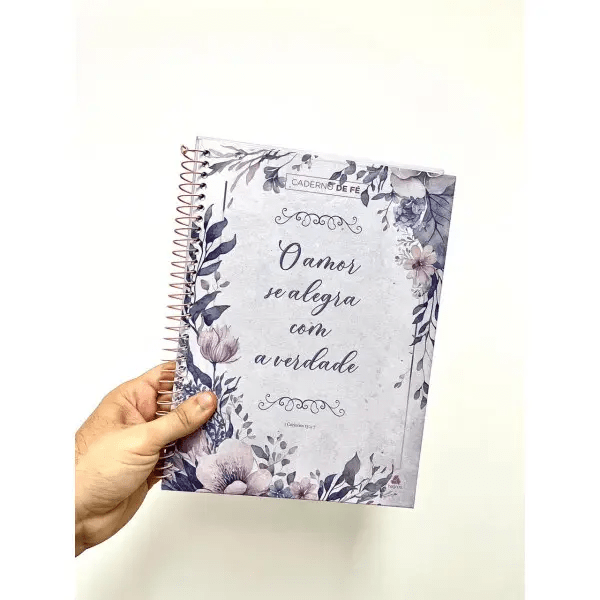 CADERNO DE FÉ
O amor
se alegra
com
a verdade